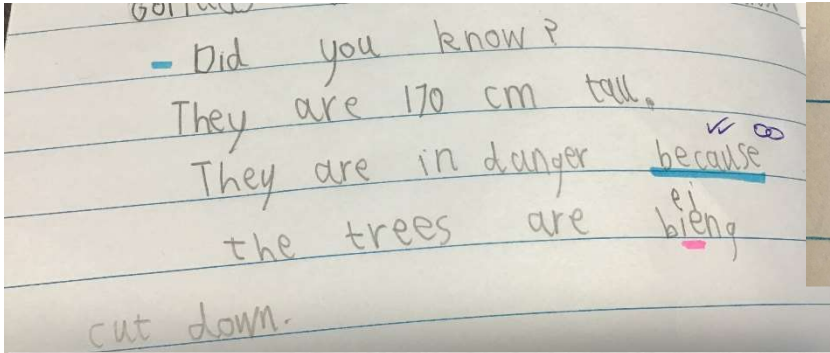 - Did you know?
They are 170 cm tall.
They are in danger because
ei
the trees are bieng
cut down.